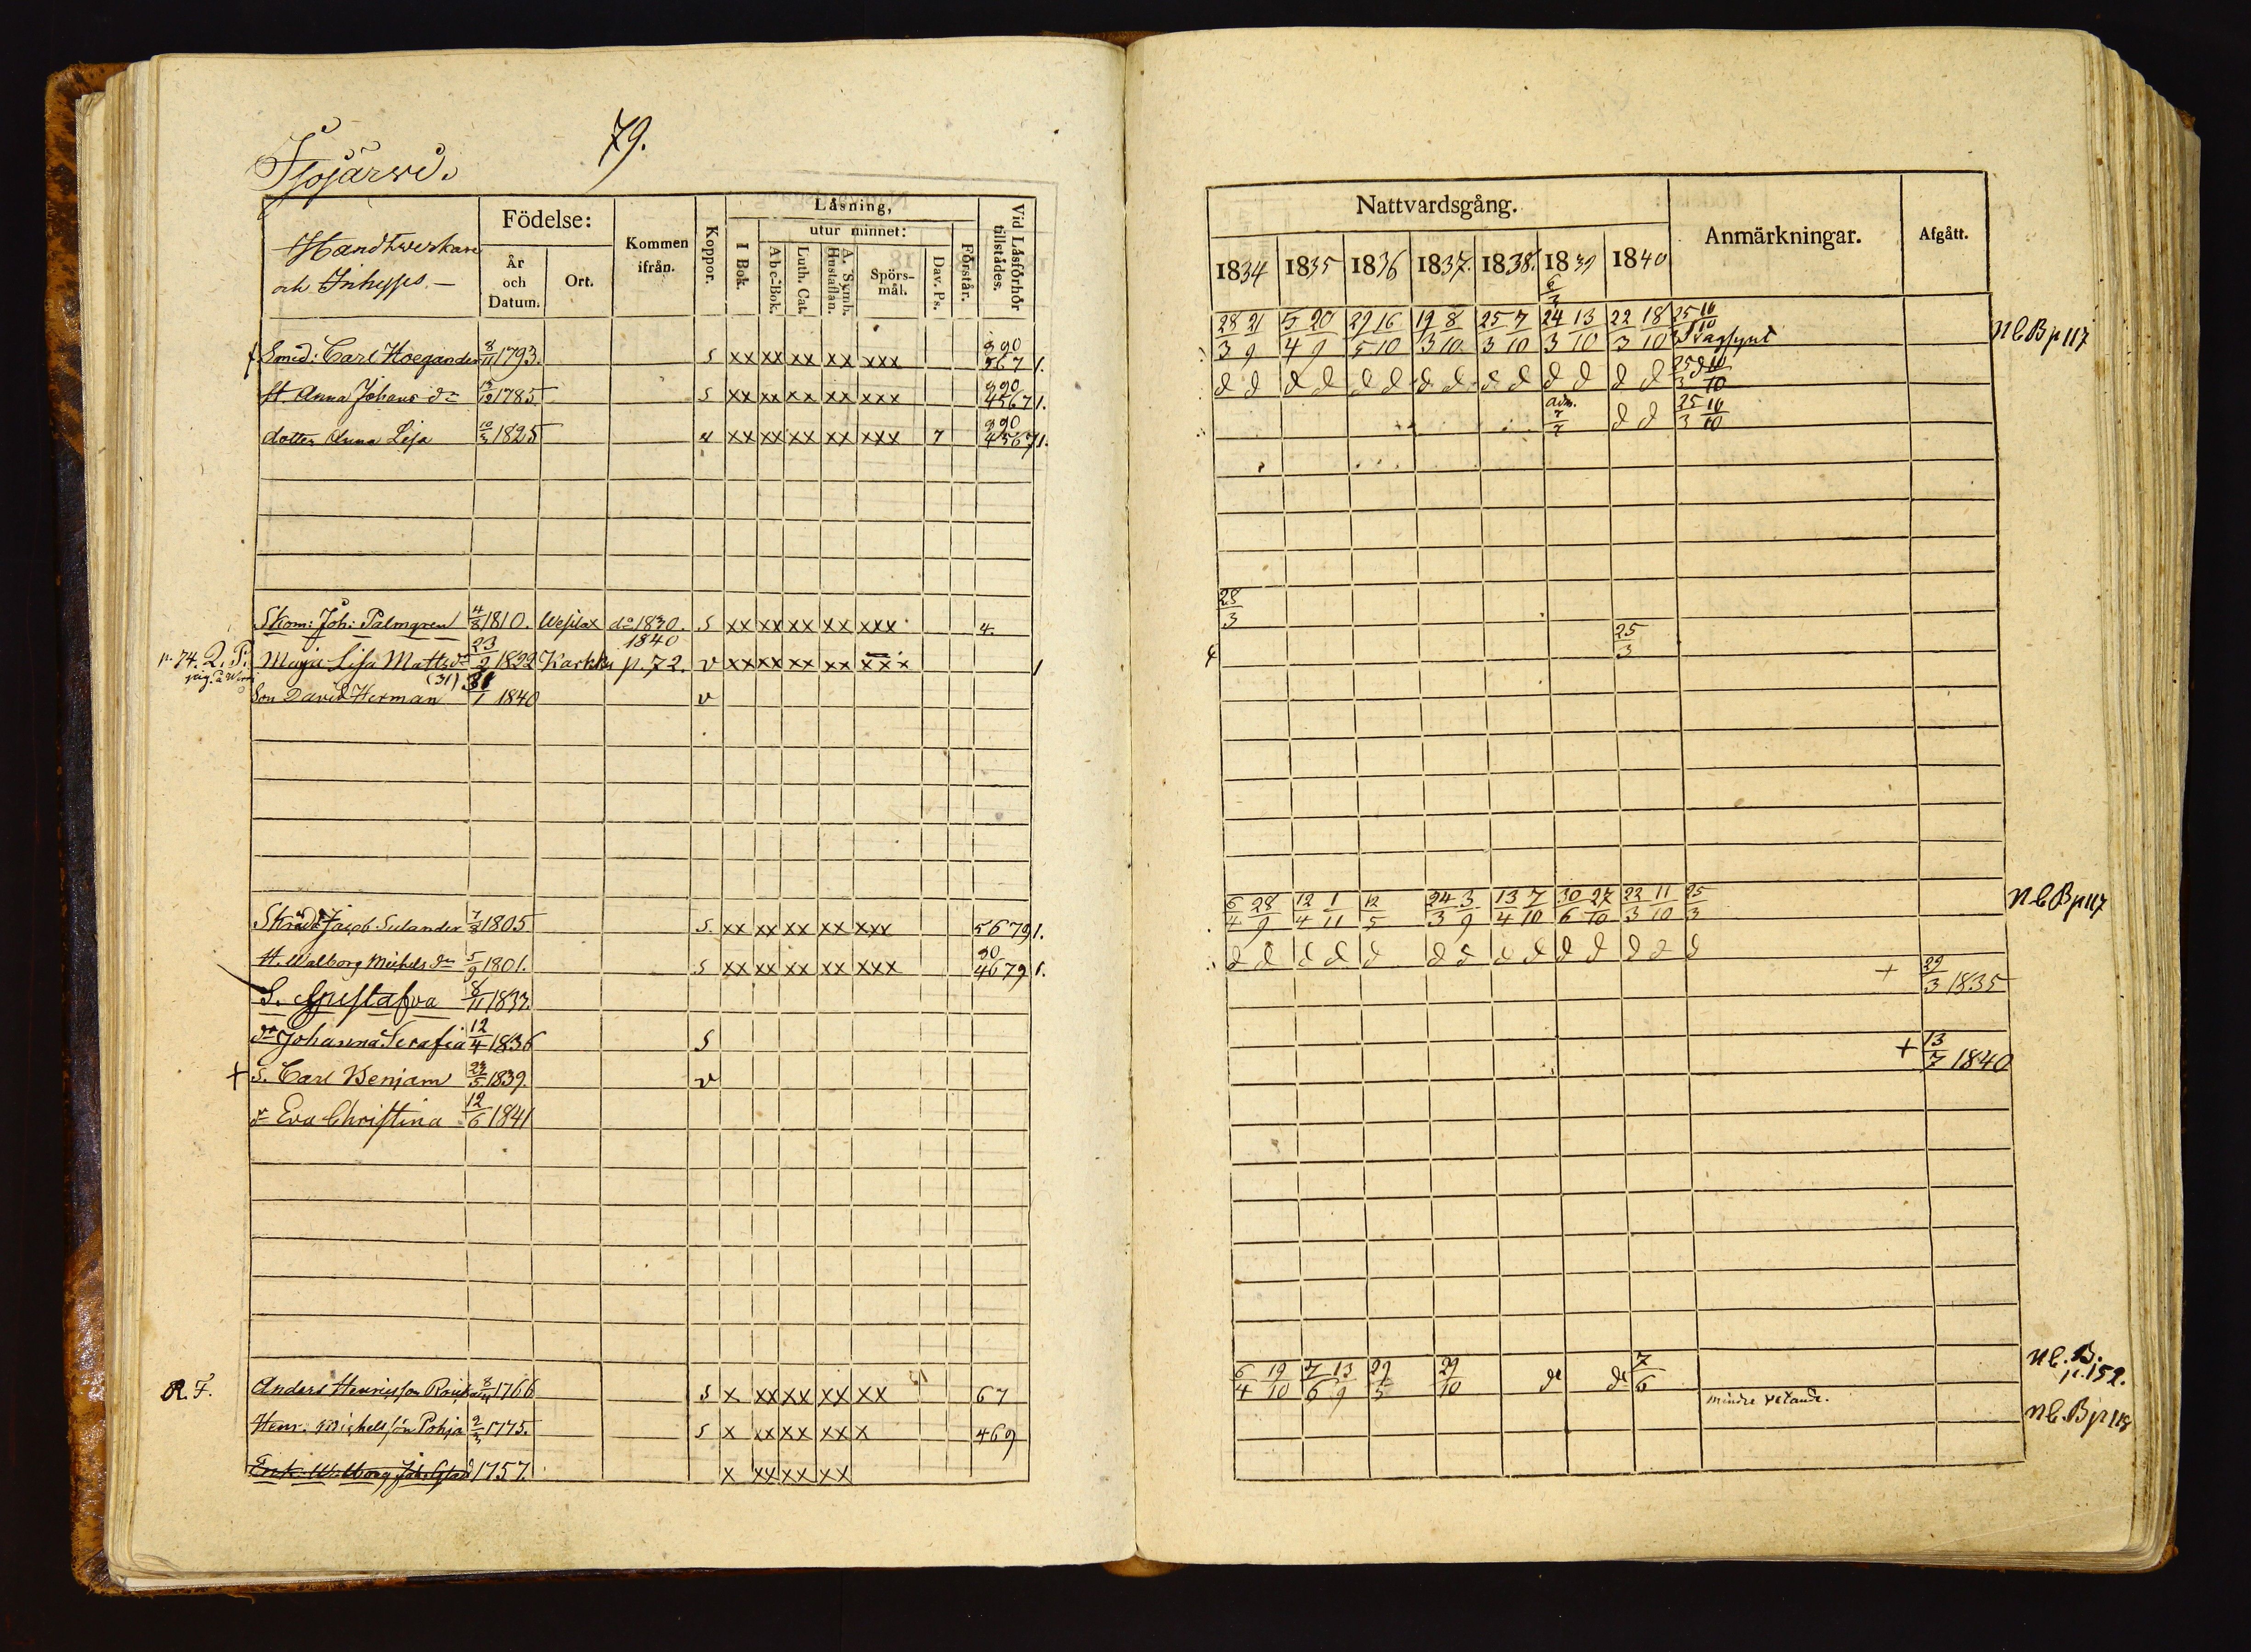 79.
Isojärwi.
Handtwerkare
och Inhysses. —
Födelse:
År
och
Datum.
Ort.
Kommen
ifrån.
Koppor.
Läsning,
I Bok.
utur minnet:
Abc-Bok.
Luth. Cat.
A. Symb.
Hustaflan.
Spörs-
mål.
Dav. Ps.
Förstår.
Vid Läsförhör
tillstädes.
Smed: Carl Hoegander 8/11 1793. s xx xx xx xx xxx 890 567 1.
H. Anna Johans dr 1785 s xx xx xx xx xxx 890 4567 1.
dotter Anna Lisa 10/3 1825 xx xx xx xx xxx 7 890 4567 1.
Skom: Joh: Palmgren 4/8 1810. Wesilax do 1830. s xx xx xx xx xxx 4.
1840
p. 74. Maja Lisa Mattsdr 23/2 1822 Karkku p. 72. v xx xx xx xx xxx 1
Son David Herman (31) 31/1 1840 v
Skrädd: Jacob Sulander 7/3 1805 s. xx xx xx xx xxx 5679 1.
H. Walborg Michels dr 5/9 1801. s xx xx xx xx xxx 90 4679 1.
S. Gustafva 8/11 1833.
dr Johanna Serafia 12/4 1836 s
+ S. Carl Benjam 1839. v
dr Eva Christina 12/6 1841
R. F. Anders Henricsson 1766 s x xx xx xx xx 67
Henr. Michelsson Pohja 2/3 1775. s x xx xx xx x 469
1757. x xx xx xx
Nattvardsgång.
1834 1835 1836 1837. 1838. 1839 1840
Anmärkningar.
Afgått.
6/3
28/3 21/9 5/4 20/9 29/5 16/10 19/3 8/10 25/3 7/10 24/3 13/10 22/3 18/10 25/3 10/10 Swagsynt N C B p 117
d d d d d d d d d d d d d d 25/3 d 10/10
adm. d d 25/3 10/10
28/3
25/3
6/4 28/9 12/4 1/11 12/5 24/3 3/9 13/4 7/10 30/6 27/10 22/3 11/10 25/3 N C B p 117
d d d d d d d d d d d d d d
+ 29/3 1835
+ 13/7 1840
6/4 19/10 7/6 13/9 29/5 29/10 do do 7/6 N C. B. p. 152.
mindre vetande. N C. B p 118